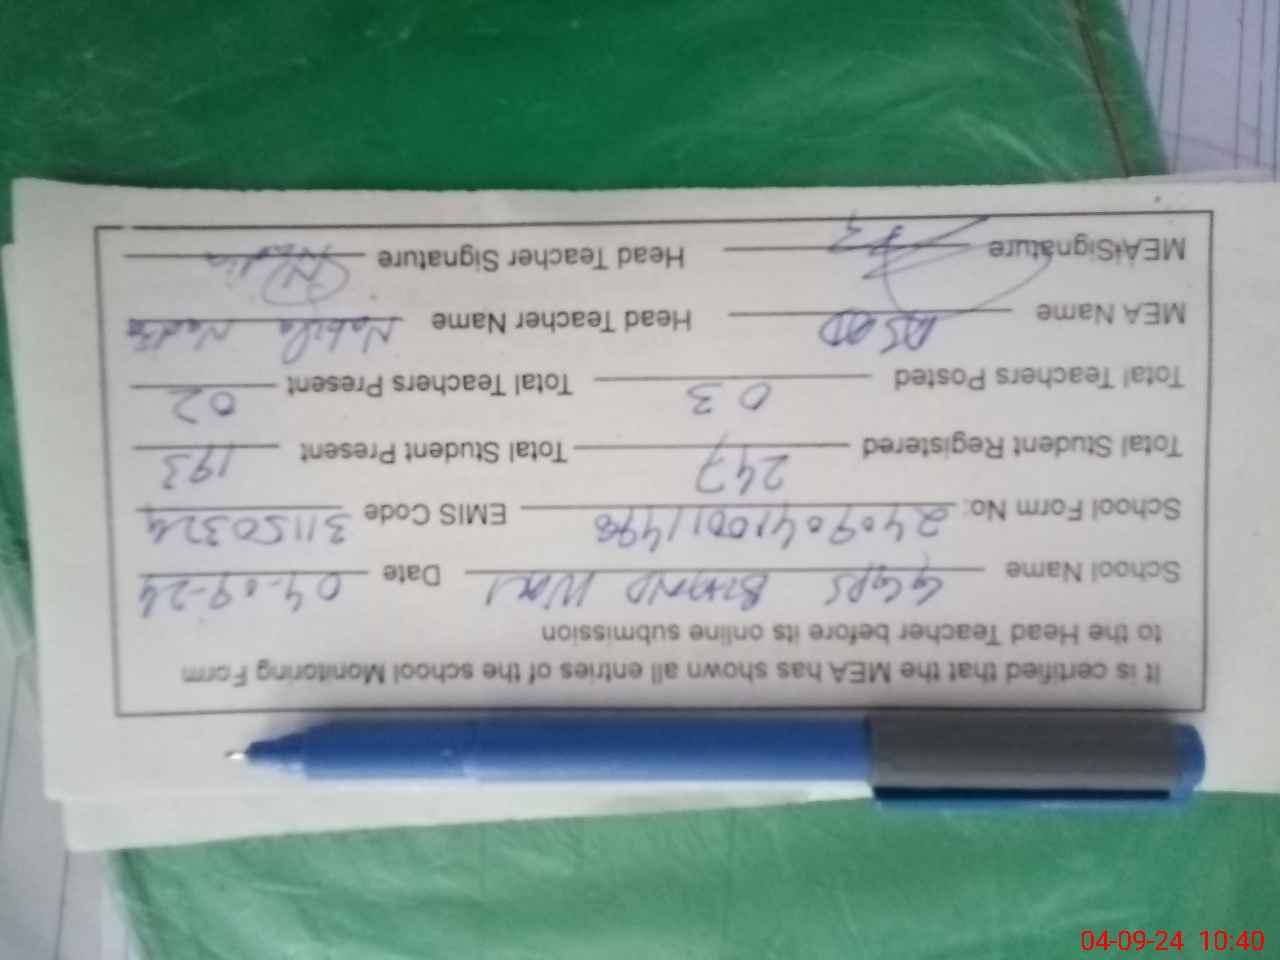 It is certified that the MEA has shown all entries of the school Monitoring Form
to the Head Teacher before its online submission
School Name GGPS Date 04-09-24
School Form No: 24090410011498 EMIS Code 31150324
Total Student Registered 247 Total Student Present 193
Total Teachers Posted 03 Total Teachers Present 02
MEA Name ASAD Head Teacher Name Nabila Nadia
MEA Signature Head Teacher Signature Nadia
04-09-24 10:40